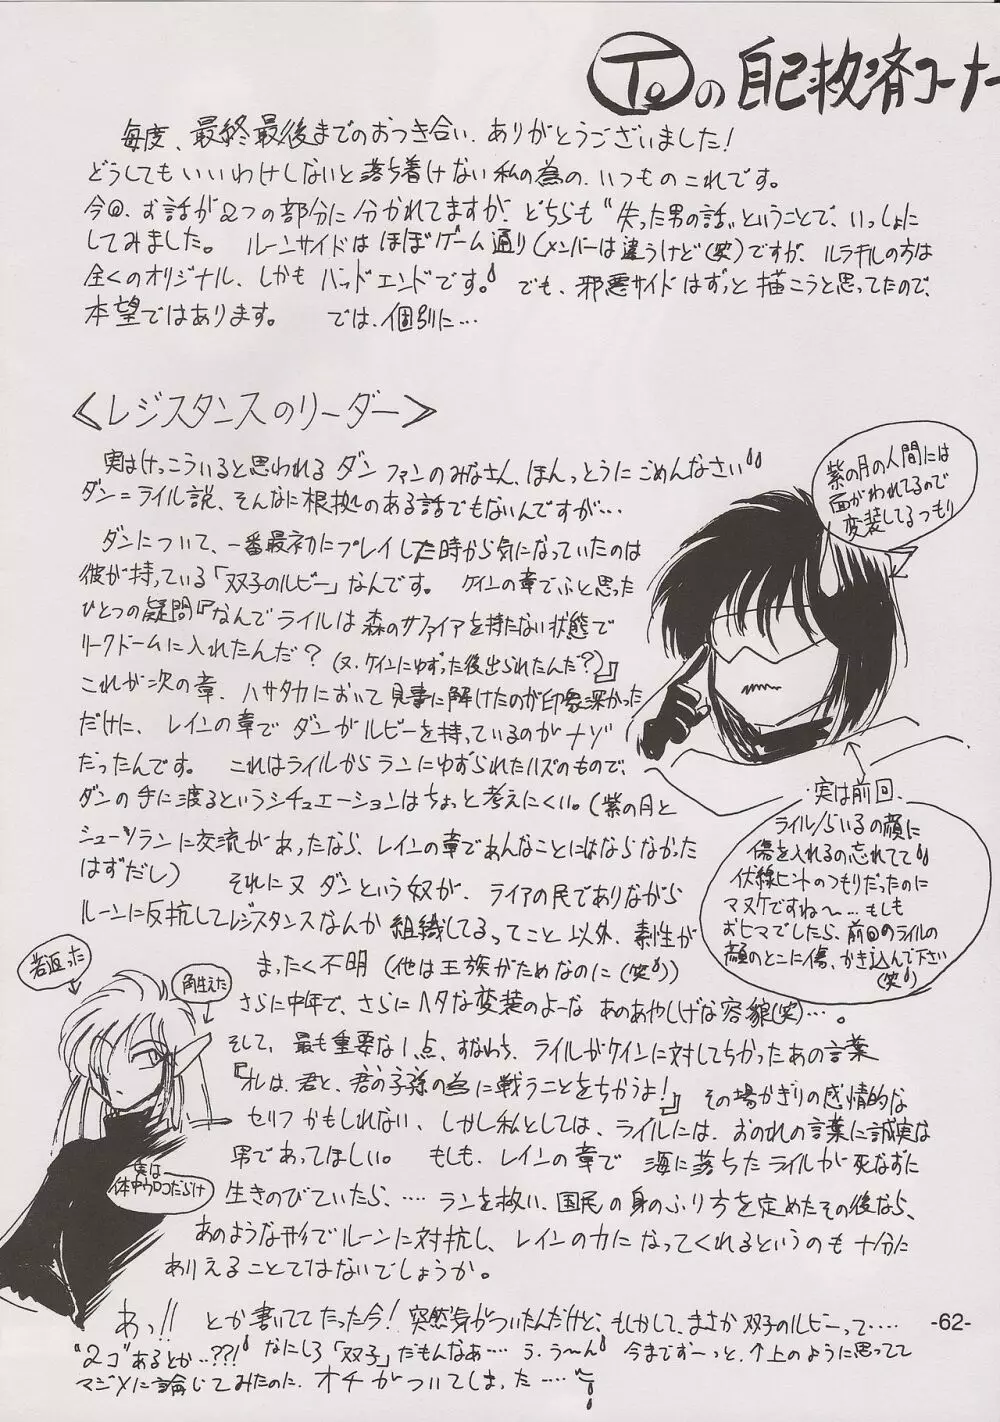 Toの自己救済コーナー
毎度、最終最後までのおつき合い、ありがとうございました!
どうしてもいいわけしないと落ち着けない私の為の、いつものこれです。
今回、お話が2つの部分に分かれてますが、どちらも“失った男の話”ということで、いっしょに
してみました。 ルーンサイドはほぼゲーム通り(メンバーは違うけど(笑)ですが、ルラギルの方は
全くのオリジナル、しかもバッドエンドです。 でも、邪悪サイドはずっと描こうと思ってたので、
本望ではあります。 では、個別に…
≪レジスタンスのリーダー≫
実はけっこういると思われるダンファンのみなさん、ほんっとうにごめんなさい
ダン=ライル説、そんなに根拠のある話でもないんですが…
ダンについて、一番最初にプレイした時から気になっていたのは
彼が持っている「双子のルビー」なんです。 ケインの章でふと思った
ひとつの疑問『なんでライルは森のサファイアを持たない状態で
リークドームに入れたんだ?(又、ケインにゆずった後出られたんだ?)』
これが次の章、ハサタカにおいて見事に解けたのが印象深かった
だけに、レインの章でダンがルビーを持っているのがナゾ
だったんです。 これはライルからランにゆずられたハズのもので、
ダンの手に渡るというシチュエーションはちょっと考えにくい。(紫の月と
シューツランに交流があったなら、レインの章であんなことにはならなかった
はずだし) それに又ダンという奴が、ライアの民でありながら
ルーンに反抗してレジスタンスなんか組織してるってこと以外、素性が
まったく不明(他は王族がためなのに(笑))
さらに中年で、さらにヘタな変装のよーなあのあやしげな容貌(笑)…。
そして、最も重要な1点、すなわち、ライルがケインに対してちかったあの言葉
『オレは、君と、君の子孫の為に戦うことをちかうよ!』その場かぎりの感情的な
セリフかもしれない、しかし私としては、ライルには、おのれの言葉に誠実な
男であってほしい。 もしも、レインの章で海に落ちたライルが死なずに
生きのびていたら、…… ランを救い、国民の身のふり方を定めたその後なら、
あのような形でルーンに対抗し、レインの力になってくれるというのも十分に
ありえることではないでしょうか。
あっ!! とか書いててたった今!突然気がついたんだけど、もしかして、まさか双子のルビーって……
“2コ”あるとか..??! なにしろ「双子」だもんなあ…… う、う〜ん 今までずーっと、↑上のように思ってて
マジメに論じてみたのに、オチがついてしまった……
紫の月の人間には
面がわれてるので
変装してるつもり
実は前回、
ライル/らいるの顔に
傷を入れるの忘れてて
伏線ヒントのつもりだったのに
マヌケですね〜…もしも
おヒマでしたら、前回のライルの
顔のとこに傷、かき込んで下さい
(笑)
若返った
角生えた
実は
体中ウロコだらけ
-62-